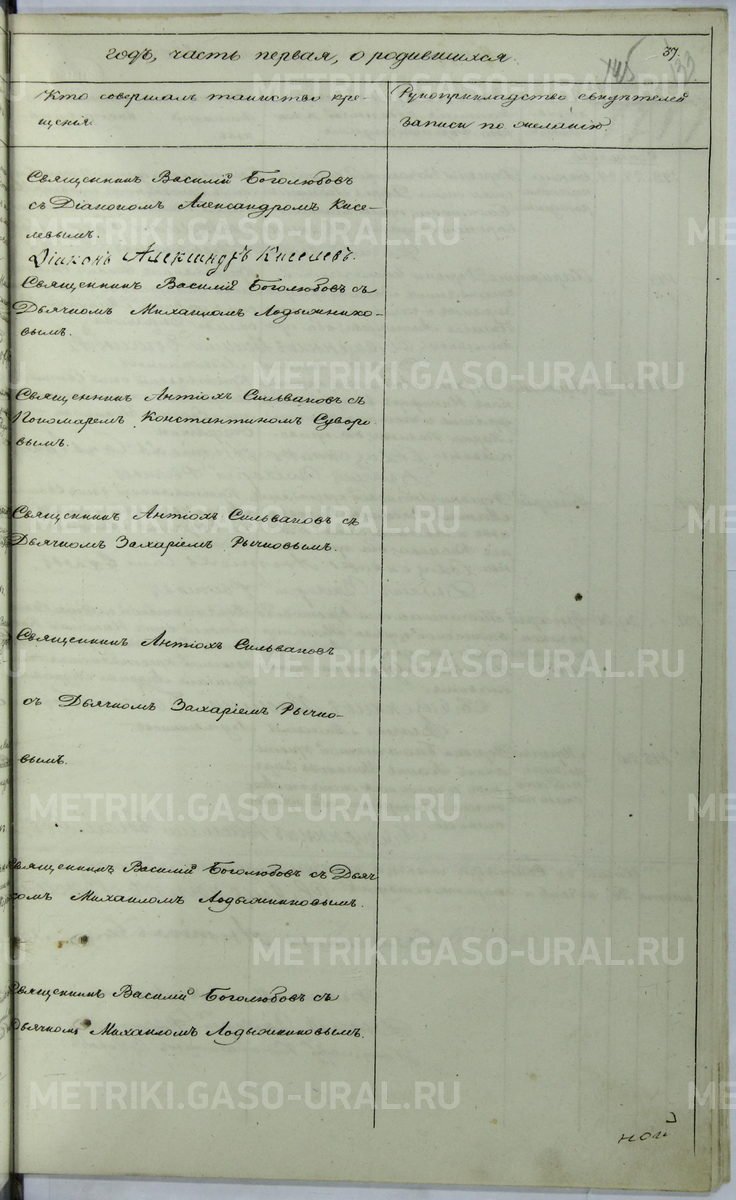 годъ, часть первая, о родившихся.
37.
Кто совершалъ таинство кре-
щенія.
Рукоприкладство свидѣтелей
записи по желанію.
Священникъ Василій Боголюбовъ
съ Діакономъ Александромъ Кисе-
левымъ.
Діаконъ Александръ Киселевъ.
Священникъ Василій Боголюбовъ съ
Дьячкомъ Михаиломъ Лодыжнико-
вымъ.
Священникъ Антіохъ Сильвановъ съ
Пономаремъ Константиномъ Суворо
вымъ.
Священникъ Антіохъ Сильвановъ съ
Дьячкомъ Захаріемъ Рычковымъ.
Священникъ Антіохъ Сильвановъ
съ Дьячкомъ Захаріемъ Рычко-
вымъ.
Священникъ Василій Боголюбовъ съ Дьяч
комъ Михаиломъ Лодыжниковымъ.
Священникъ Василій Боголюбовъ съ
Дьячкомъ Михаиломъ Лодыжниковымъ.
METRIKI.GASO-URAL.RU